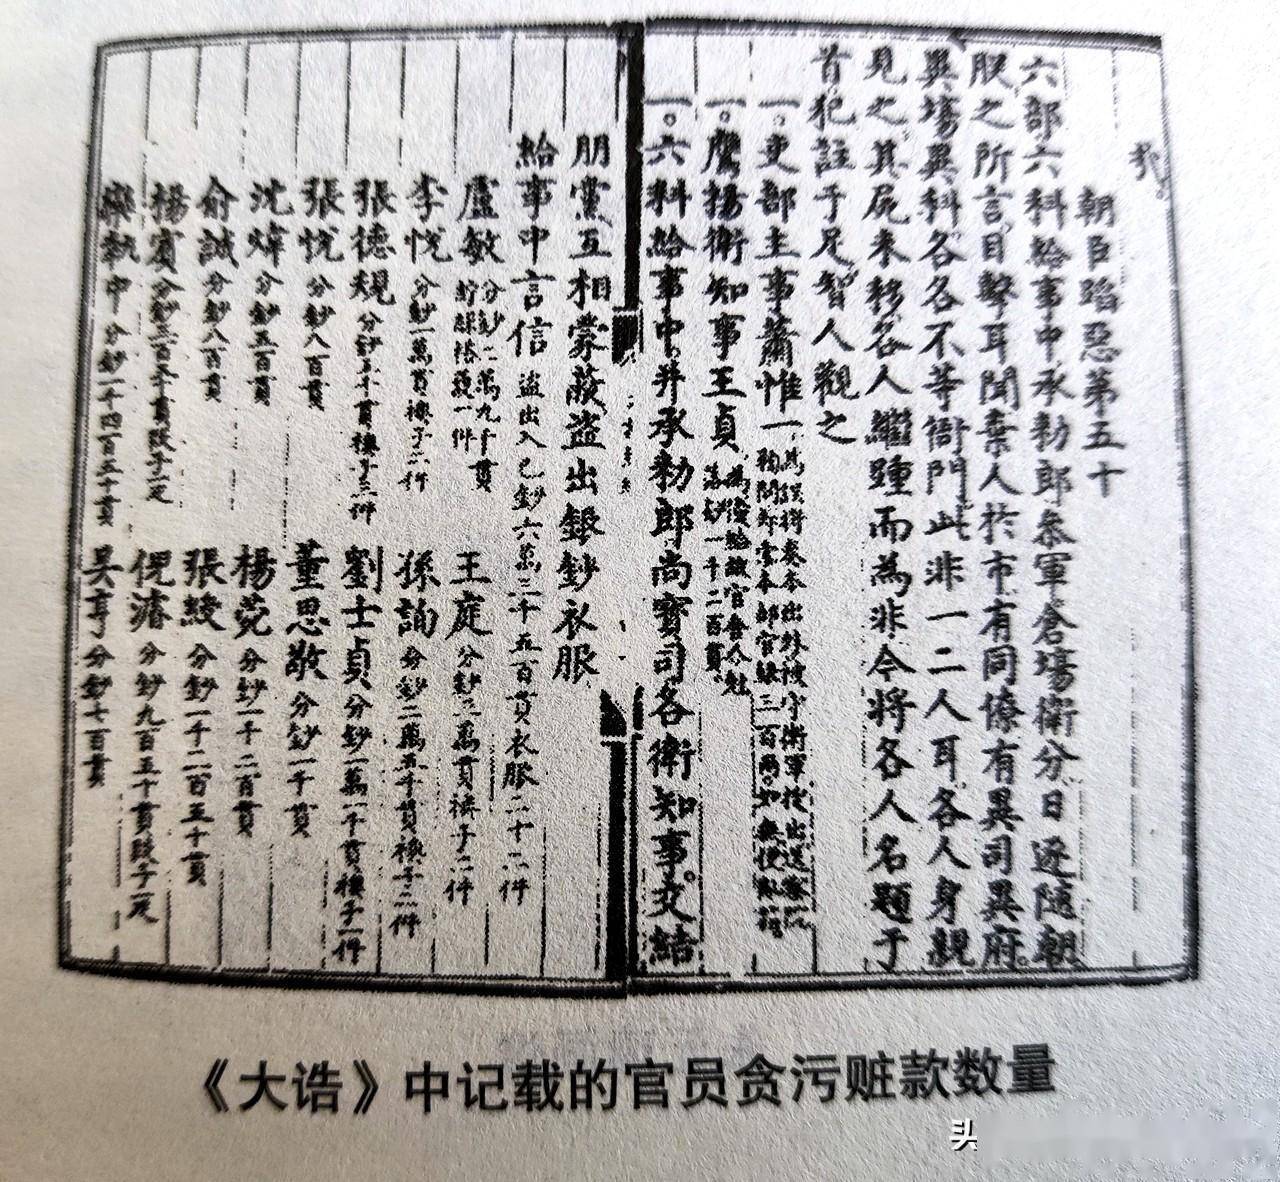 朝臣蹈惡第五十
六部六科給事中承勑郎叅軍倉場衛分日逐隨朝
朕之所言目擊耳聞棄人於市有同僚有異司異府
異場異科各各不等衙門此非一二人耳各人身親
見之其屍未移各人繼踵而為非今將各人名題于
首犯註于足智人觀之
一。吏部主事蕭惟一
一。鷹揚衛知事王貞
一。六科給事中并承勑郎尚寶司各衛知事交結
朋黨互相蒙蔽盜出銀鈔衣服
給事中言信 盜出入已鈔六萬三千五百貫衣服二十二件
盧敏 分鈔二萬九千貫 一件 王庭 分鈔三萬貫襖子二件
李恱 分鈔一萬貫襖子二件 孫詢 分鈔二萬五千貫襖子三件
張德規 分鈔五千貫襖子三件 劉士貞 分鈔一萬一千貫襖子一件
張恱 分鈔八百貫 董思敬 分鈔一千貫
沈煒 分鈔五百貫 楊莞 分鈔一千二百貫
俞誠 分鈔八百貫 張綬 分鈔一千二百五十貫
楊賓 分鈔三百五十貫段子一疋 倪濬 分鈔九百五十貫段子一疋
樂執中 分鈔一千四百五十貫 吳亨 分鈔七百貫
《大诰》中记载的官员贪污赃款数量
头